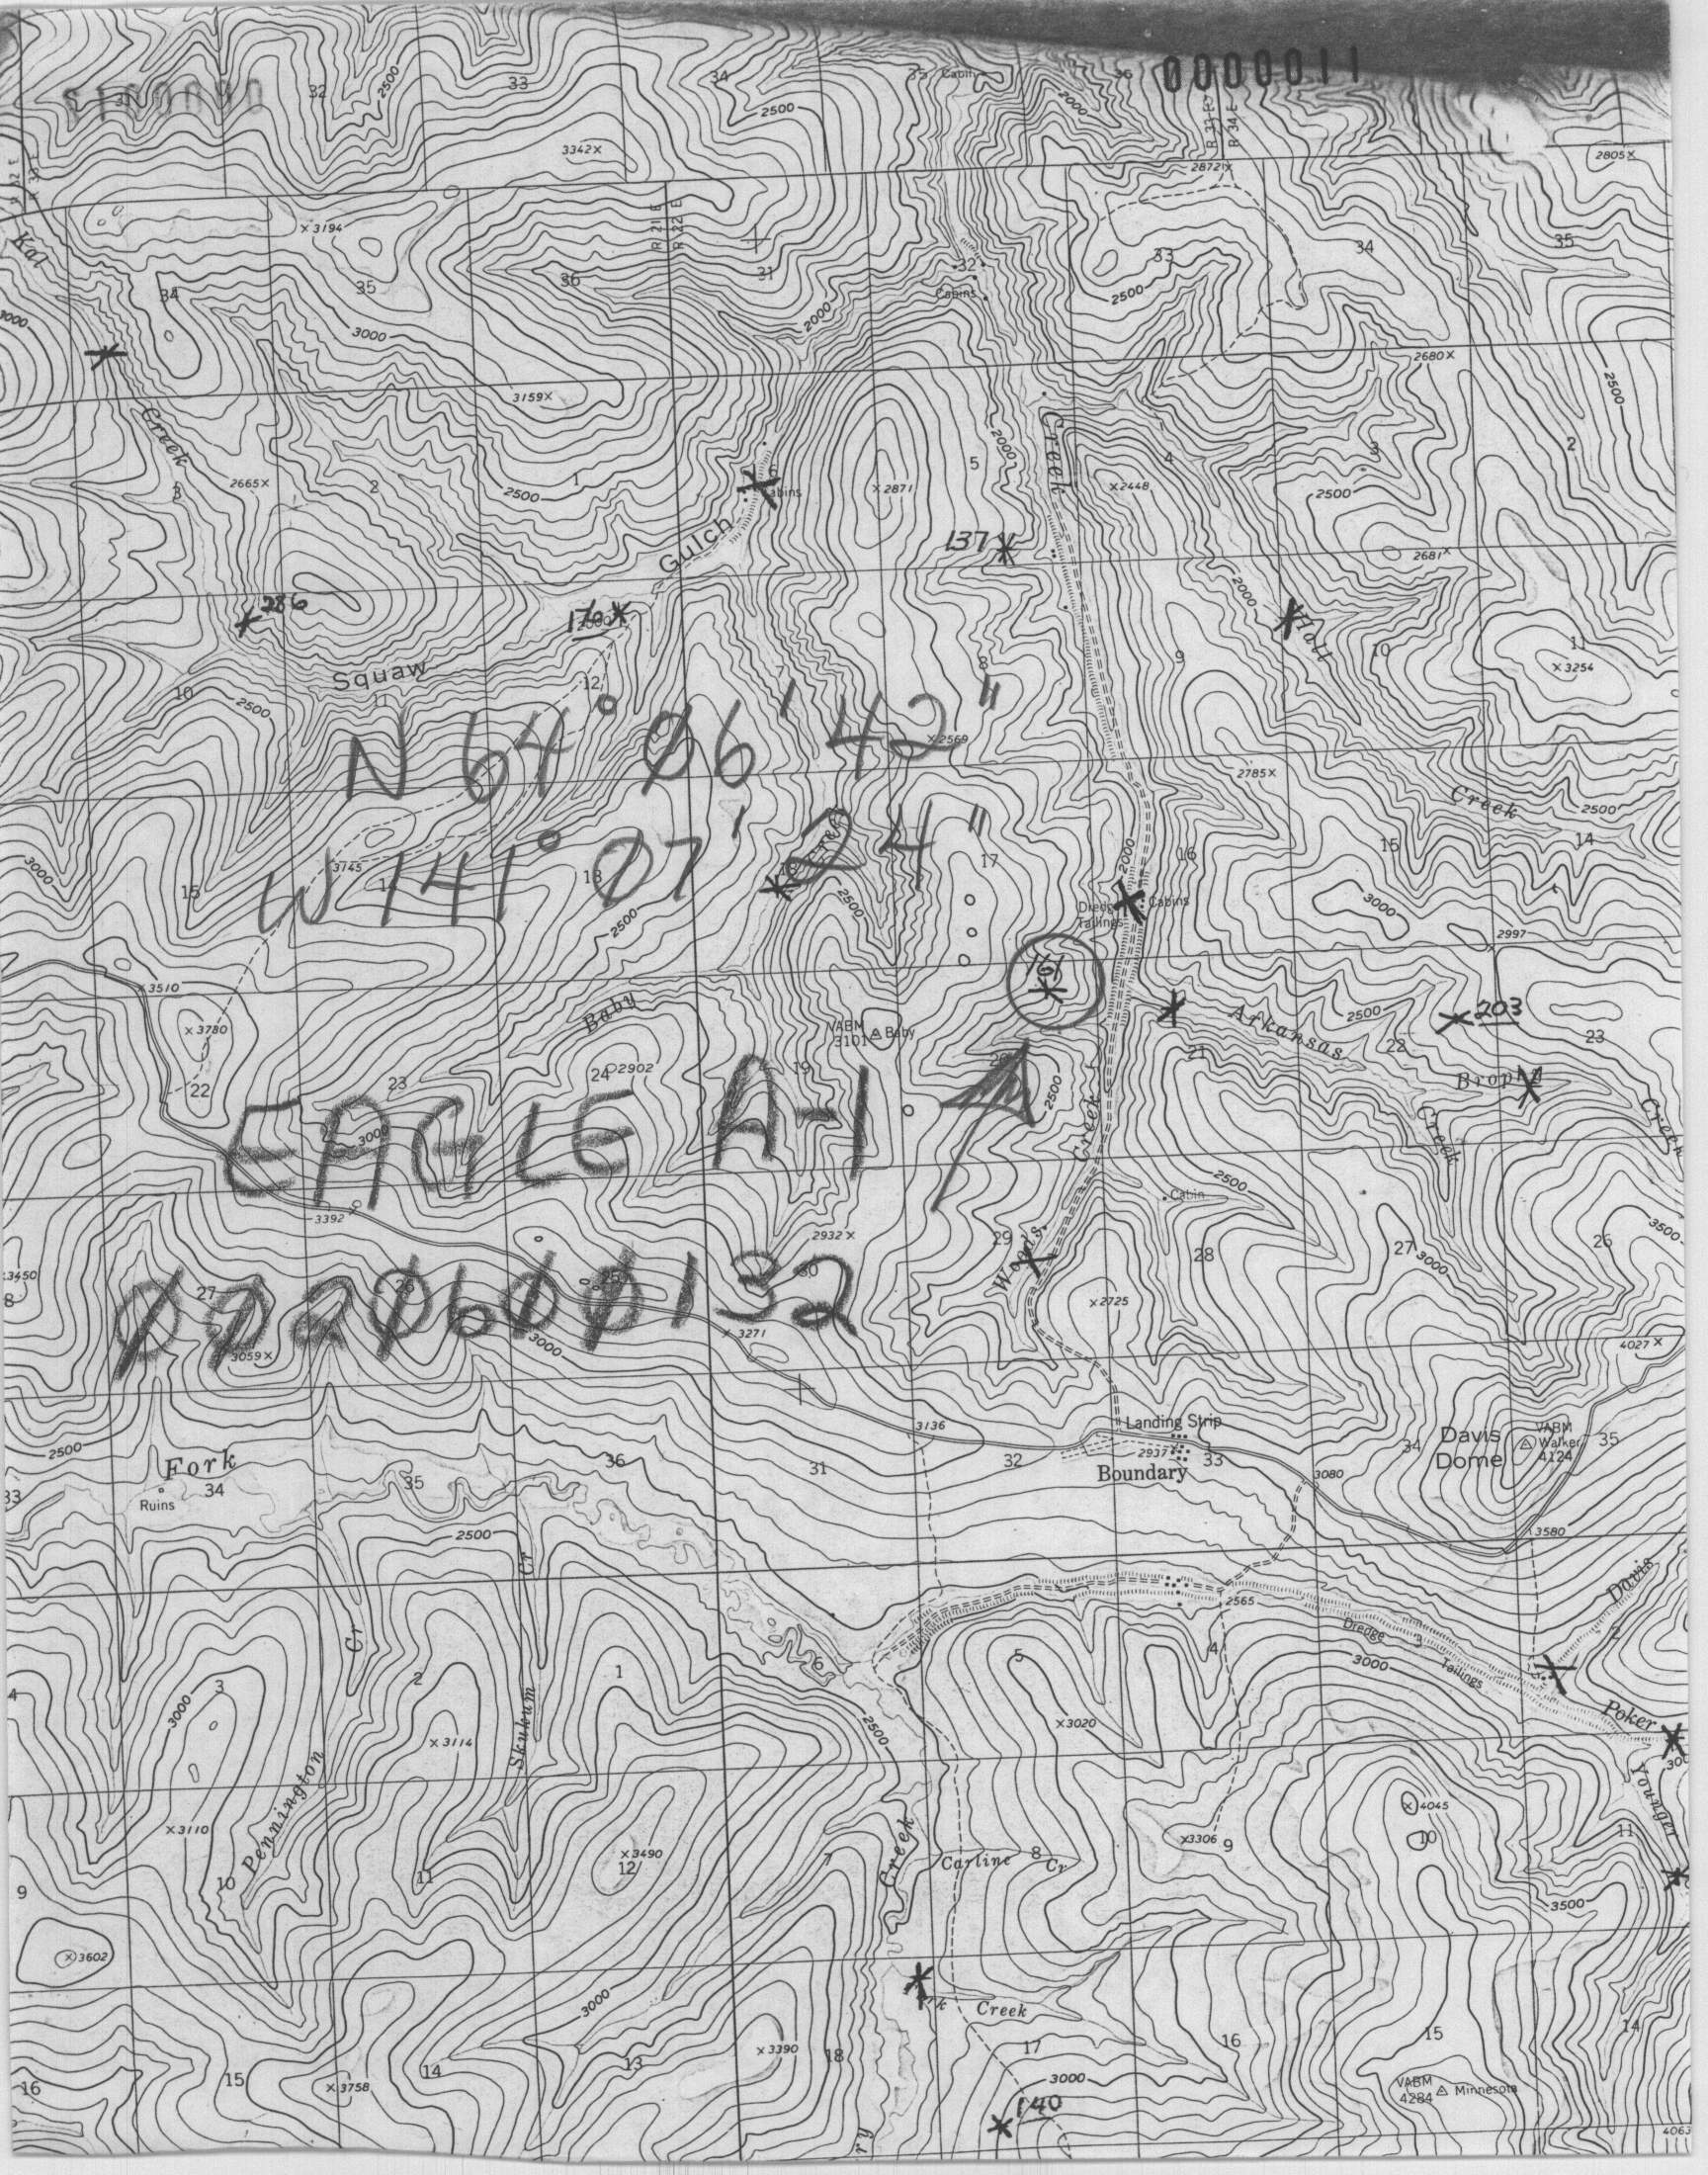 0000011
31
32
2500
33
34
35
Cabin
36
2500
2000
R 33 E
R 34 E
3342×
2872×
2805×
R 32 E
R 33 E
×3194
R 21 E
R 22 E
Kal
34
35
36
31
32
Cabins
33
34
35
2500
3000
3000
2000
2680×
2500
3159×
Creek
2000
Creek
5
4
3
2
3
2665×
2
1
2500
6
Cabins
×2871
×2448
2500
Gulch
137
2681×
2000
286
170
2000
Hall
Squaw
10
11
12
7
8
9
10
11
×3254
2500
N 64° 06' 42"
×2569
2785×
Creek
2500
W 141° 07' 24"
3000
3745
15
18
Creek
17
2000
16
15
14
2500
2500
Dredge
Tailings
Cabins
3000
2997
3510
×3780
Baby
VABM
3101
Baby
161
Arkansas
2500
203
22
23
24
2902
19
20
21
22
23
2500
Brophy
Creek
Creek
EAGLE A-1
3000
Creek
Cabin
2500
3392
2932×
29
Woods
28
27
3000
26
3500
3450
27
26
25
30
0020600132
×2725
3059×
3000
×3271
4027×
3136
Landing Strip
2937
Boundary
2500
Fork
Ruins
33
34
35
36
31
32
33
3080
34
Davis
Dome
VABM
Walker
4124
35
2500
3580
Cr
Davis
2565
Dredge
Tailings
Cr
4
3
2
1
6
5
4
3
2
3000
Skukum
×3114
2500
×3020
3000
Poker
Younger
Pennington
×3110
×3490
4045
9
10
11
12
7
Creek
Carline Cr
8
×3306
9
10
11
3500
×3602
3000
Creek
16
15
×3758
14
13
×3390
18
17
16
15
14
3000
VABM
4284
Minnesota
140
ry
4063